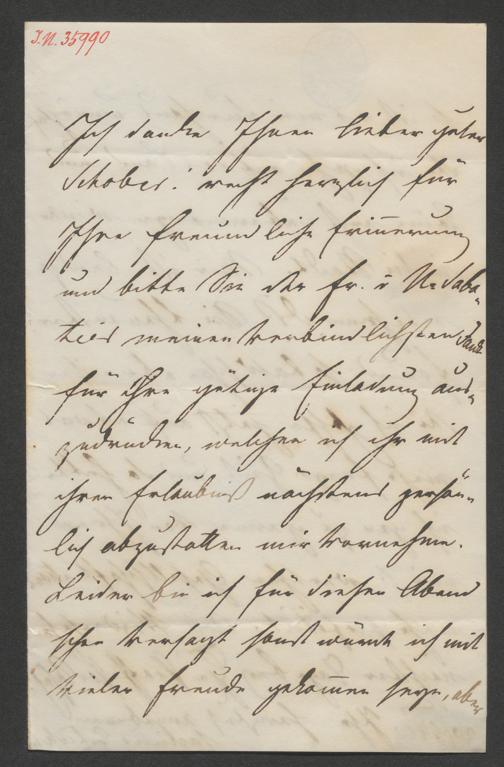 I.N. 35990
Ich danke Ihnen lieber guter
Schober! recht herzlich für
Ihre freundliche Erinnerung
und bitte Sie der Fr. v U. Saba-
tier meinen verbindlichsten Dank
für ihre gütige Einladung aus-
zudrücken, welchen ich ihr mit
ihrer Erlaubniß nächstens persön-
lich abzustatten mir vornehme.
Leider bin ich für diesen Abend
schon versagt sonst würde ich mit
vieler Freude gekommen seyn, aber